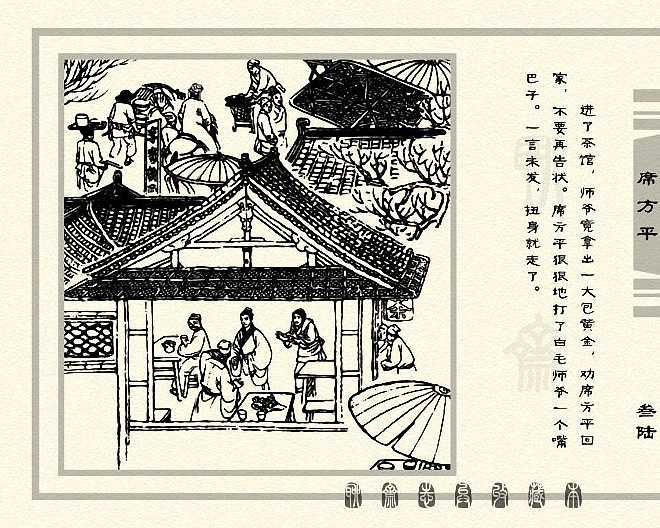 进了茶馆，师爷竟拿出一大包黄金，劝席方平回
家，不要再告状。席方平狠狠地打了白毛师爷一个嘴
巴子。一言未发，扭身就走了。
席方平
叁陆
茶